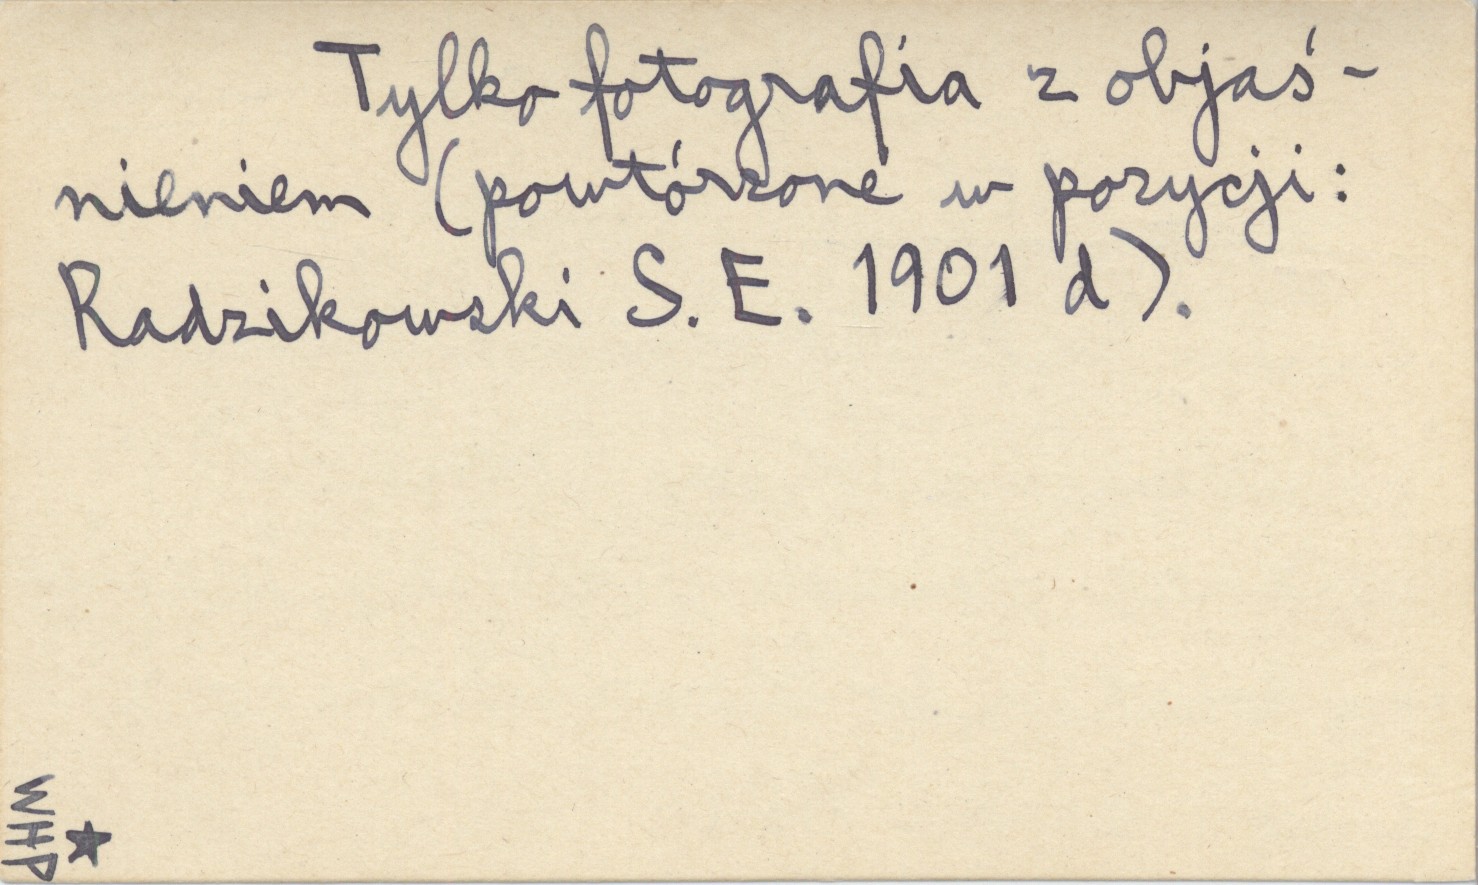 Tylko fotografia z objaś-
nieniem (powtórzone w pozycji:
Radzikowski S. E. 1901 d).
WHP ★